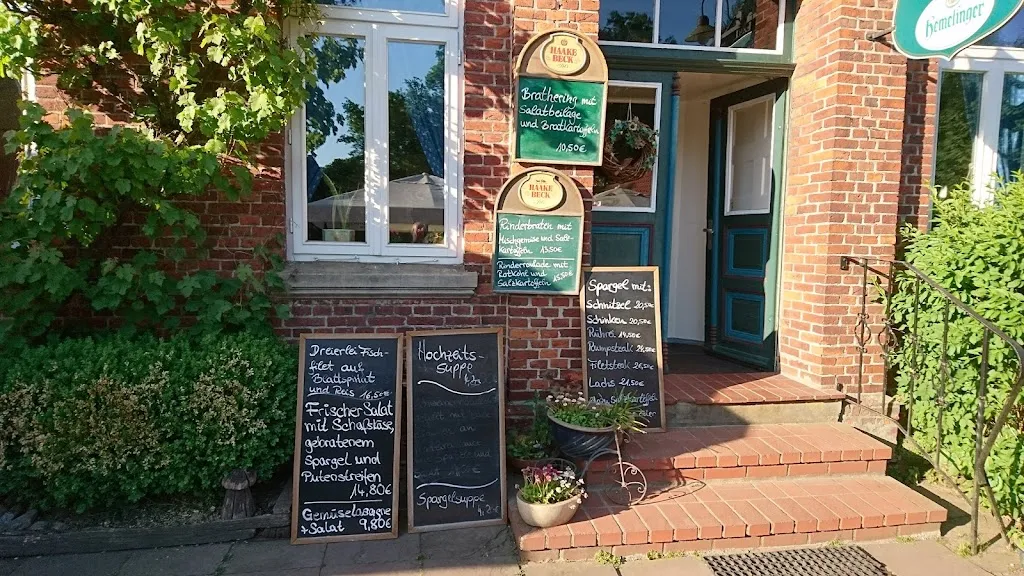 Hemelinger
HAAKE
BECK
Brathering mit
Salatbeilage
und Bratkartoffeln
10,50€
HAAKE
BECK
Rinderbraten mit
Mischgemüse und Salz-
kartoffeln 13,50€
Rinderroulade mit
Rotkohl und
Salzkartoffeln
Spargel mit:
Schnitzel 20,50€
Schinken 20,50€
Rührei
Rumpsteak
Filetsteak
Lachs 21,50€
Dreierlei Fisch-
filet auf
Blattspinat
und Reis 16,50€
Frischer Salat
mit Schafskäse,
gebratenem
Spargel und
Putenstreifen
14,80€
Gemüselasagne
+ Salat 9,80€
Hochzeits-
suppe
Spargelsuppe